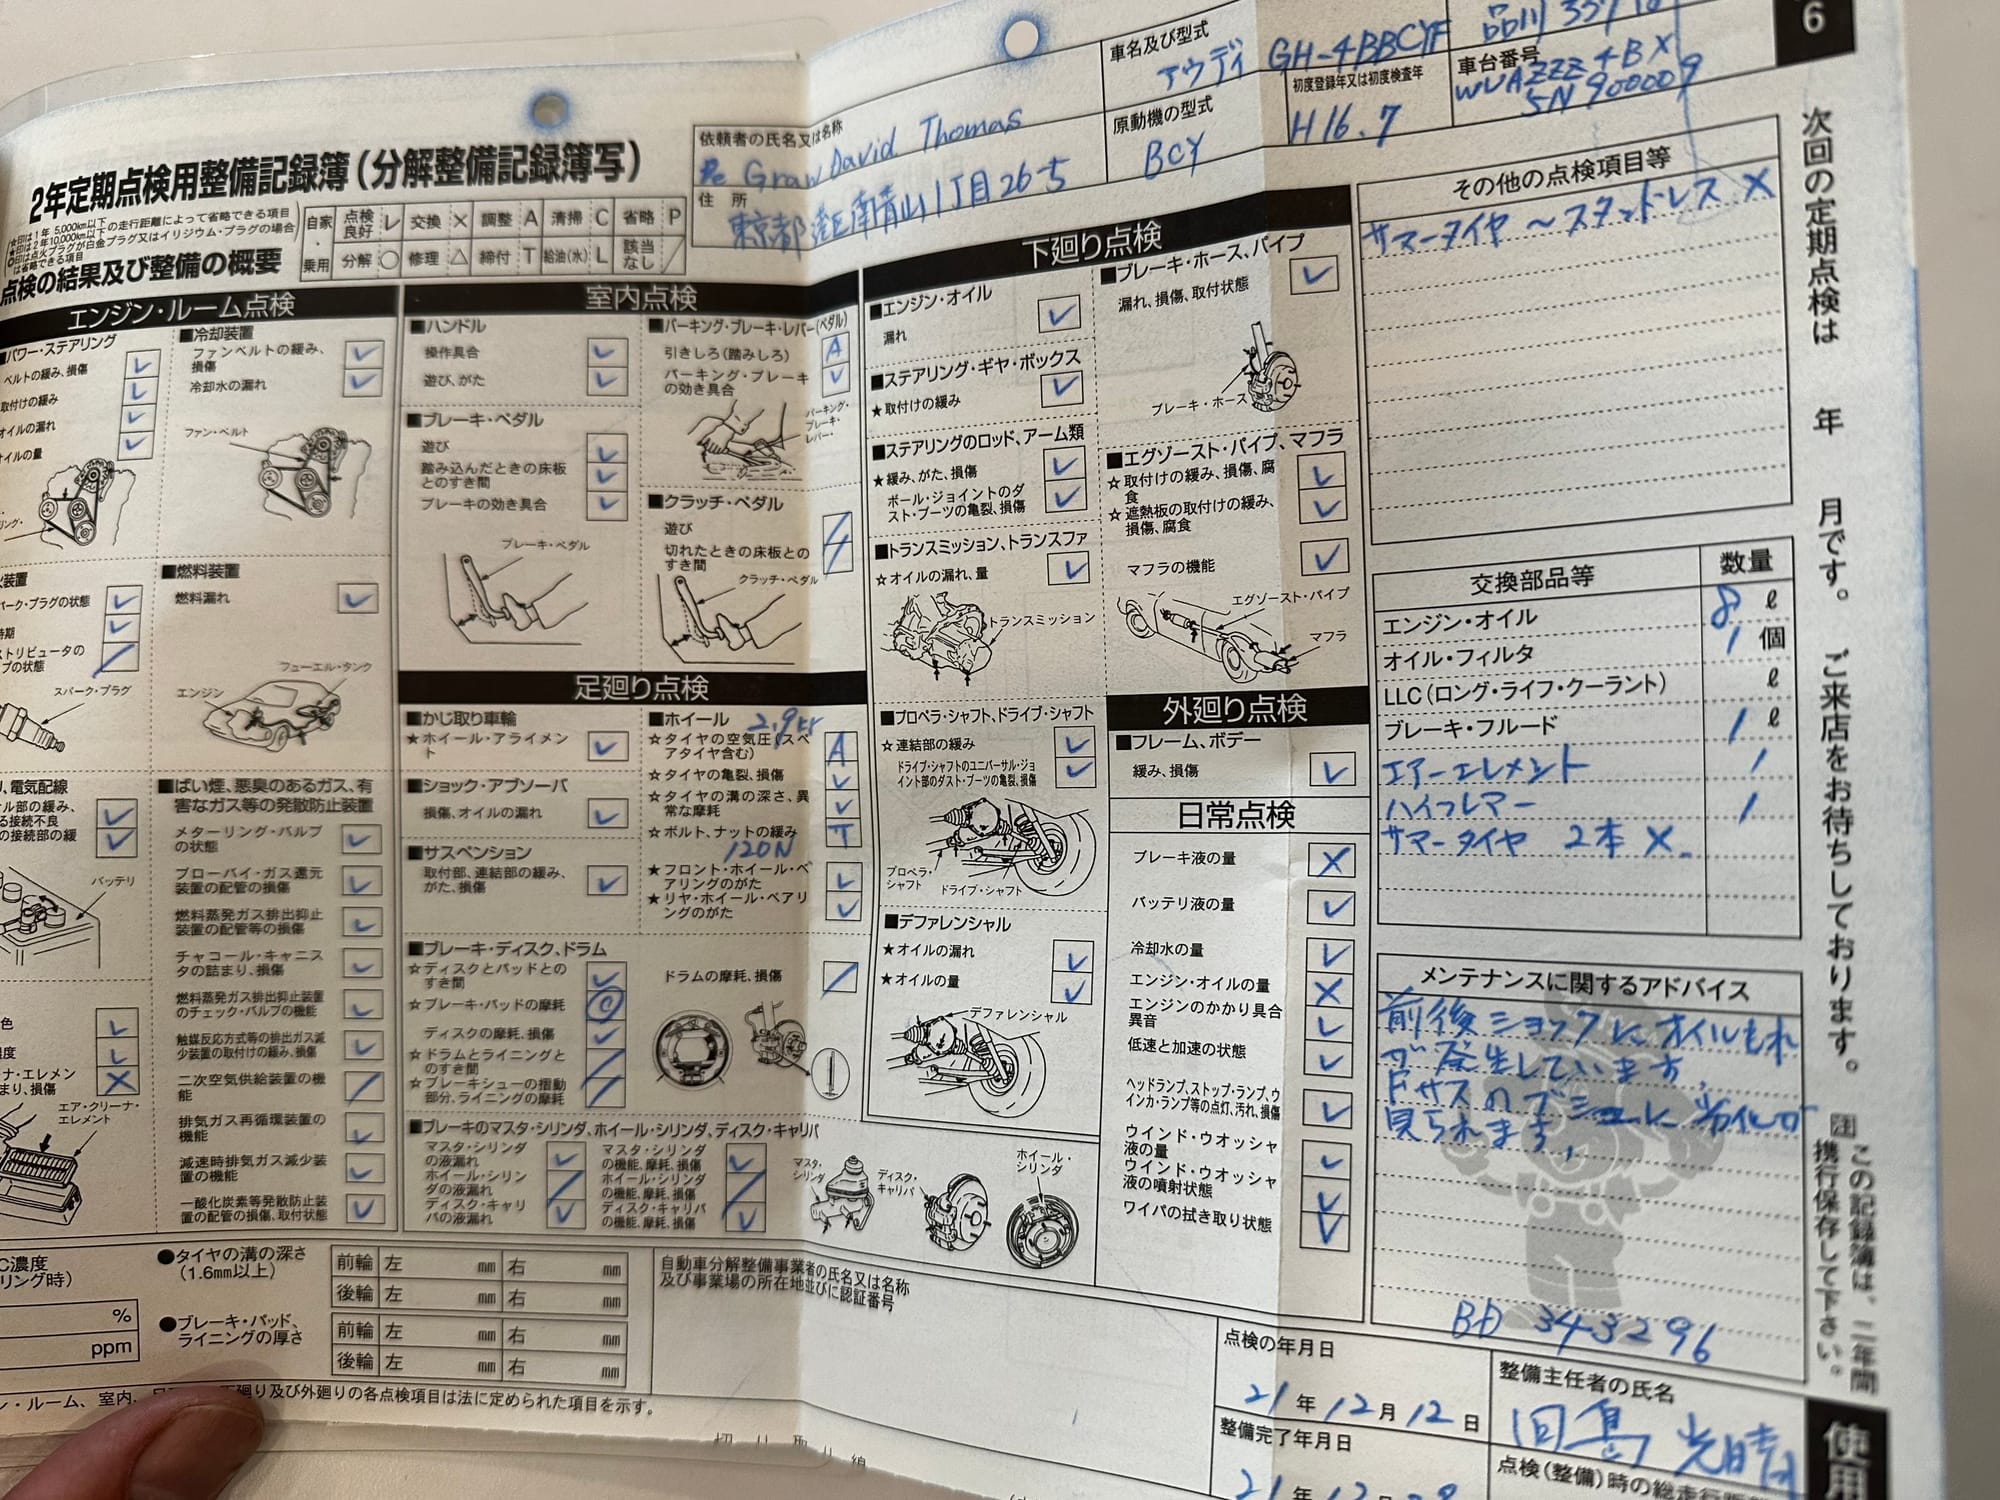 2年定期点検用整備記録簿(分解整備記録簿写)
☆印は1年 5,000km以下の走行距離によって省略できる項目
★印は2年10,000km以下
◎印は点火プラグが白金プラグ又はイリジウム・プラグの場合は省略できる項目
点検の結果及び整備の概要
自家・乗用
点検良好 レ 交換 × 調整 A 清掃 C 省略 P
分解 ○ 修理 △ 締付 T 給油(水) L 該当なし /
依頼者の氏名又は名称
David Thomas
住所
東京都港区南青山1丁目26-5
車名及び型式
アウディ GH-4BBCYF
原動機の型式
BCY
初度登録年又は初度検査年
H16.7
品川
車台番号
WUAZZZ4BX
5N900009
6
エンジン・ルーム点検
パワー・ステアリング
ベルトの緩み、損傷 レ
取付けの緩み レ
オイルの漏れ レ
オイルの量 レ
■冷却装置
ファンベルトの緩み、損傷 レ
冷却水の漏れ レ
ファン・ベルト
火装置
パーク・プラグの状態 レ
時期 レ
ストリビュータの
プの状態 /
スパーク・プラグ
■燃料装置
燃料漏れ レ
フューエル・タンク
エンジン
、電気配線
ル部の緩み、
る接続不良 レ
の接続部の緩 レ
バッテリ
色 レ
濃度 レ
ナ・エレメン
まり、損傷 ×
エア・クリーナ・エレメント
■ばい煙、悪臭のあるガス、有害なガス等の発散防止装置
メターリング・バルブの状態 レ
ブローバイ・ガス還元装置の配管の損傷 レ
燃料蒸発ガス排出抑止装置の配管等の損傷 レ
チャコール・キャニスタの詰まり、損傷 レ
燃料蒸発ガス排出抑止装置のチェック・バルブの機能 レ
触媒反応方式等の排出ガス減少装置の取付けの緩み、損傷 レ
二次空気供給装置の機能 /
排気ガス再循環装置の機能 レ
減速時排気ガス減少装置の機能 レ
一酸化炭素等発散防止装置の配管の損傷、取付状態 レ
室内点検
■ハンドル
操作具合 レ
遊び、がた レ
■ブレーキ・ペダル
遊び レ
踏み込んだときの床板とのすき間 レ
ブレーキの効き具合 レ
ブレーキ・ペダル
■パーキング・ブレーキ・レバー(ペダル)
引きしろ(踏みしろ) A
パーキング・ブレーキの効き具合 レ
パーキング・ブレーキ・レバー
■クラッチ・ペダル
遊び /
切れたときの床板とのすき間 /
クラッチ・ペダル
足廻り点検
■かじ取り車輪
★ホイール・アライメント レ
■ショック・アブソーバ
損傷、オイルの漏れ レ
■サスペンション
取付部、連結部の緩み、がた、損傷 レ
■ホイール
☆タイヤの空気圧(スペアタイヤ含む) A
☆タイヤの亀裂、損傷 レ
☆タイヤの溝の深さ、異常な摩耗 レ
☆ボルト、ナットの緩み T
120N
★フロント・ホイール・ベアリングのがた レ
★リヤ・ホイール・ベアリングのがた レ
■ブレーキ・ディスク、ドラム
☆ディスクとパッドとのすき間 レ
☆ブレーキ・パッドの摩耗 ◎
ディスクの摩耗、損傷 レ
☆ドラムとライニングとのすき間 /
☆ブレーキシューの摺動部分、ライニングの摩耗 /
ドラムの摩耗、損傷 /
■ブレーキのマスタ・シリンダ、ホイール・シリンダ、ディスク・キャリパ
マスタ・シリンダの液漏れ レ
ホイール・シリンダの液漏れ /
ディスク・キャリパの液漏れ レ
マスタ・シリンダの機能、摩耗、損傷 レ
ホイール・シリンダの機能、摩耗、損傷 /
ディスク・キャリパの機能、摩耗、損傷 レ
マスタ・シリンダ
ディスク・キャリパ
ホイール・シリンダ
下廻り点検
■エンジン・オイル
漏れ レ
■ステアリング・ギヤ・ボックス
★取付けの緩み レ
■ステアリングのロッド、アーム類
★緩み、がた、損傷 レ
ボール・ジョイントのダスト・ブーツの亀裂、損傷 レ
■トランスミッション、トランスファ
☆オイルの漏れ、量 レ
トランスミッション
■プロペラ・シャフト、ドライブ・シャフト
☆連結部の緩み レ
ドライブ・シャフトのユニバーサル・ジョイント部のダスト・ブーツの亀裂、損傷 レ
プロペラ・シャフト
ドライブ・シャフト
■デファレンシャル
★オイルの漏れ レ
★オイルの量 レ
デファレンシャル
■ブレーキ・ホース、パイプ
漏れ、損傷、取付状態 レ
ブレーキ・ホース
■エグゾースト・パイプ、マフラ
☆取付けの緩み、損傷、腐食 レ
☆遮熱板の取付けの緩み、損傷、腐食 レ
マフラの機能 レ
エグゾースト・パイプ
マフラ
外廻り点検
■フレーム、ボデー
緩み、損傷 レ
日常点検
ブレーキ液の量 ×
バッテリ液の量 レ
冷却水の量 レ
エンジン・オイルの量 ×
エンジンのかかり具合異音 レ
低速と加速の状態 レ
ヘッドランプ、ストップ・ランプ、ウインカ・ランプ等の点灯、汚れ、損傷 レ
ウインド・ウオッシャ液の量 レ
ウインド・ウオッシャ液の噴射状態 レ
ワイパの拭き取り状態 レ
その他の点検項目等
サマータイヤ〜スタットレス ×
交換部品等 数量
エンジン・オイル 8 ℓ
オイル・フィルタ 1 個
LLC(ロング・ライフ・クーラント) ℓ
ブレーキ・フルード 1 ℓ
エアーエレメント 1
ハイフレマー 1
サマータイヤ 2本 ×
メンテナンスに関するアドバイス
前後ショックにオイルもれ
が発生しています。
Fサスのブシュに劣化が
見られます。
BD 343296
C濃度
リング時)
%
ppm
●タイヤの溝の深さ
(1.6mm以上)
前輪 左 mm 右 mm
後輪 左 mm 右 mm
●ブレーキ・パッド、ライニングの厚さ
前輪 左 mm 右 mm
後輪 左 mm 右 mm
自動車分解整備事業者の氏名又は名称及び事業場の所在地並びに認証番号
ン・ルーム、室内、
下廻り及び外廻りの各点検項目は法に定められた項目を示す。
切り取り線
点検の年月日
21年12月12日
整備完了年月日
21年12月
整備主任者の氏名
点検(整備)時の総走行距
次回の定期点検は 年 月です。ご来店をお待ちしております。
注 この記録簿は、二年間携行保存して下さい。
使用